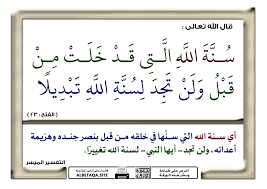 قال الله تعالى :
سُنَّةَ اللَّهِ الَّتِي قَدْ خَلَتْ مِنْ
قَبْلُ وَلَنْ تَجِدَ لِسُنَّةِ اللَّهِ تَبْدِيلًا
(الفتح: ٢٣)
أي سنة الله التي سنَّها في خلقه من قبل بنصر جنده وهزيمة
أعدائه، ولن تجد - أيها النبي - لسنة الله تغييرًا.
التفسير الميسر
ALBETAQA.SITE